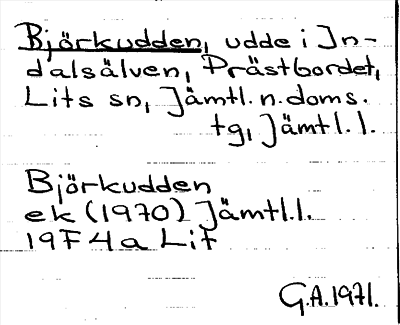 Björkudden, udde i In-
dalsälven, Prästbordet,
Lits sn, Jämtl. n. doms.
tg, Jämtl. l.
Björkudden
ek (1970) Jämtl. l.
19F 4a Lit
G.A. 1971.